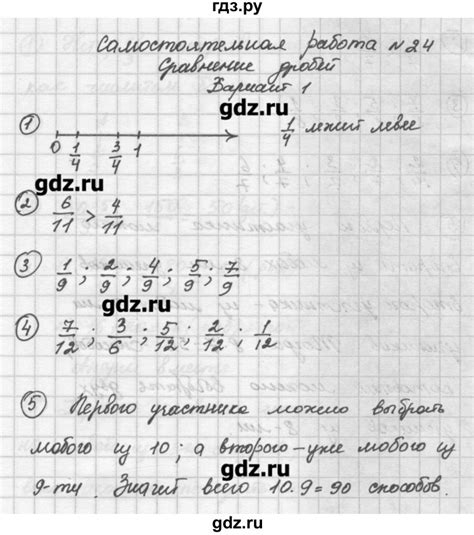 гдз.ру
Самостоятельная работа №24
Сравнение дробей
Вариант 1
gdz.ru
① 0 1/4 3/4 1 1/4 лежит левее
gdz.ru
② 6/11 > 4/11
③ 1/9 ; 2/9 ; 4/9 ; 5/9 ; 7/9
gdz.ru
④ 7/12 ; 3/6 ; 5/12 ; 2/12 ; 1/12
gdz.ru
⑤ Первого участника можно выбрать
любого из 10 ; а второго – уже любого из
gdz.ru
9-ти . Значит всего 10.9=90 способов.
gdz.ru